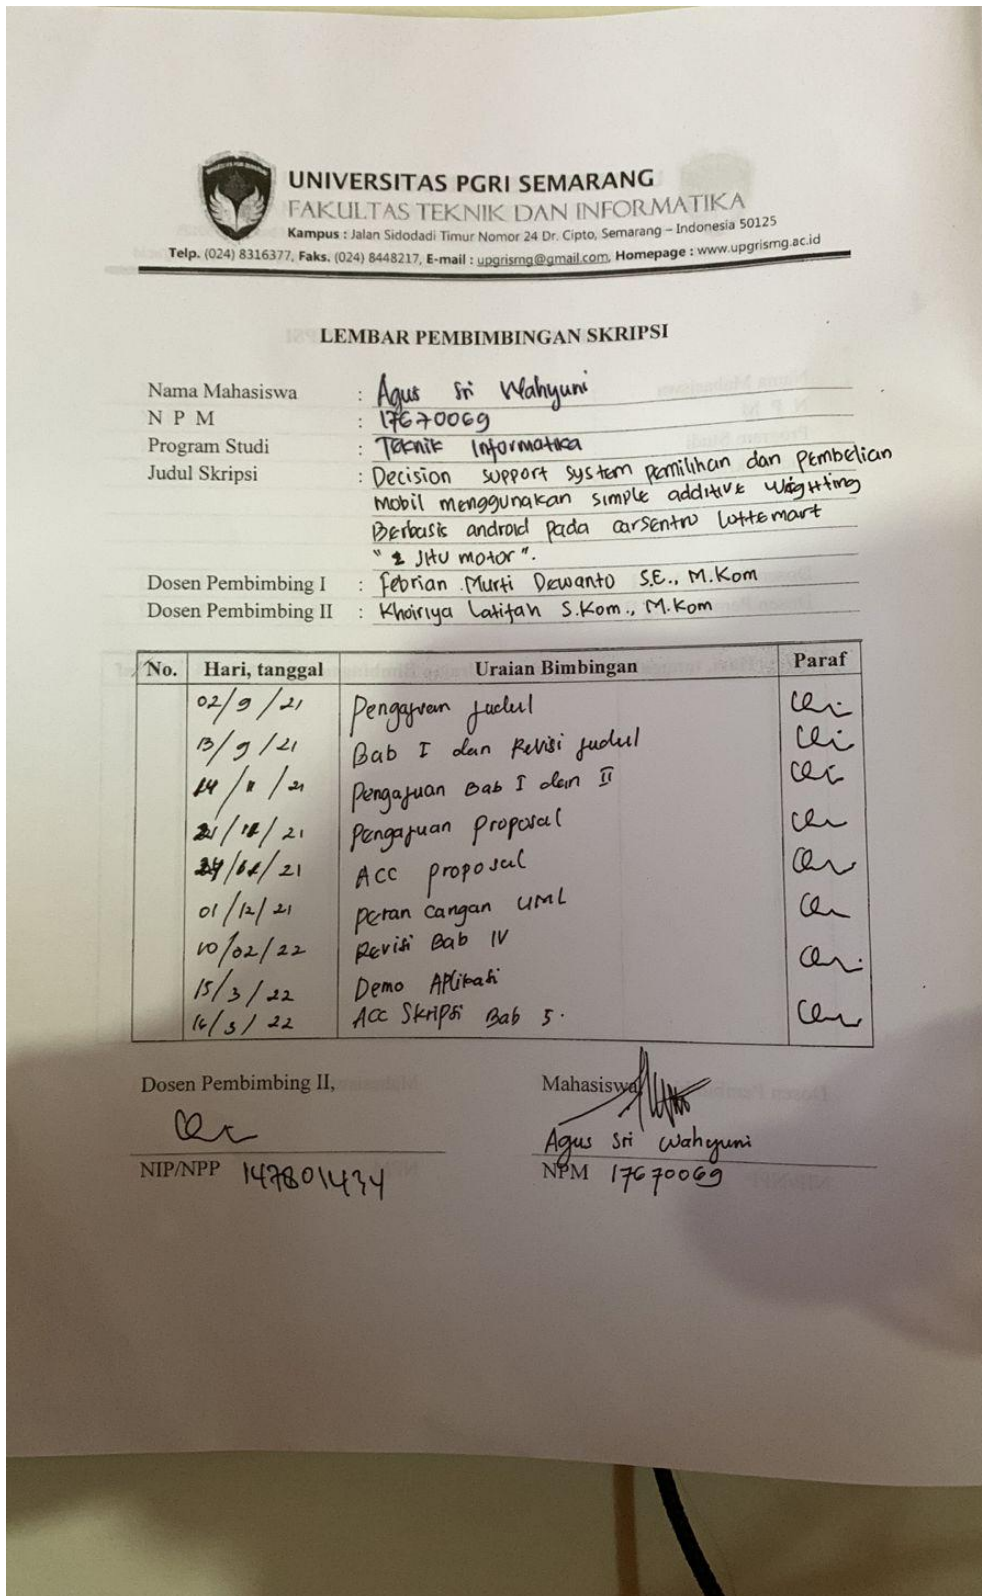 UNIVERSITAS PGRI SEMARANG
FAKULTAS TEKNIK DAN INFORMATIKA
Kampus : Jalan Sidodadi Timur Nomor 24 Dr. Cipto, Semarang – Indonesia 50125
Telp. (024) 8316377, Faks. (024) 8448217, E-mail : upgrismg@gmail.com, Homepage : www.upgrismg.ac.id
LEMBAR PEMBIMBINGAN SKRIPSI
Nama Mahasiswa : Agus Sri Wahyuni
N P M : 17670069
Program Studi : Teknik Informatika
Judul Skripsi : Decision support system pemilihan dan pembelian
mobil menggunakan simple additive weighting
Berbasis android pada carsentro lottemart
" JHU motor".
Dosen Pembimbing I : Febrian Murti Dewanto S.E., M.Kom
Dosen Pembimbing II : Khoiriya Latifah S.Kom., M.Kom
No. Hari, tanggal Uraian Bimbingan Paraf
02/9/21 Pengajuan judul
13/9/21 Bab I dan Revisi judul
/21 Pengajuan Bab I dan II
/21 Pengajuan Proposal
/21 ACC proposal
01/12/21 Perancangan UML
10/02/22 Revisi Bab IV
15/3/22 Demo Aplikasi
16/3/22 Acc Skripsi Bab 5.
Dosen Pembimbing II, Mahasiswa
Agus Sri Wahyuni
NIP/NPP 147801434 NPM 17670069